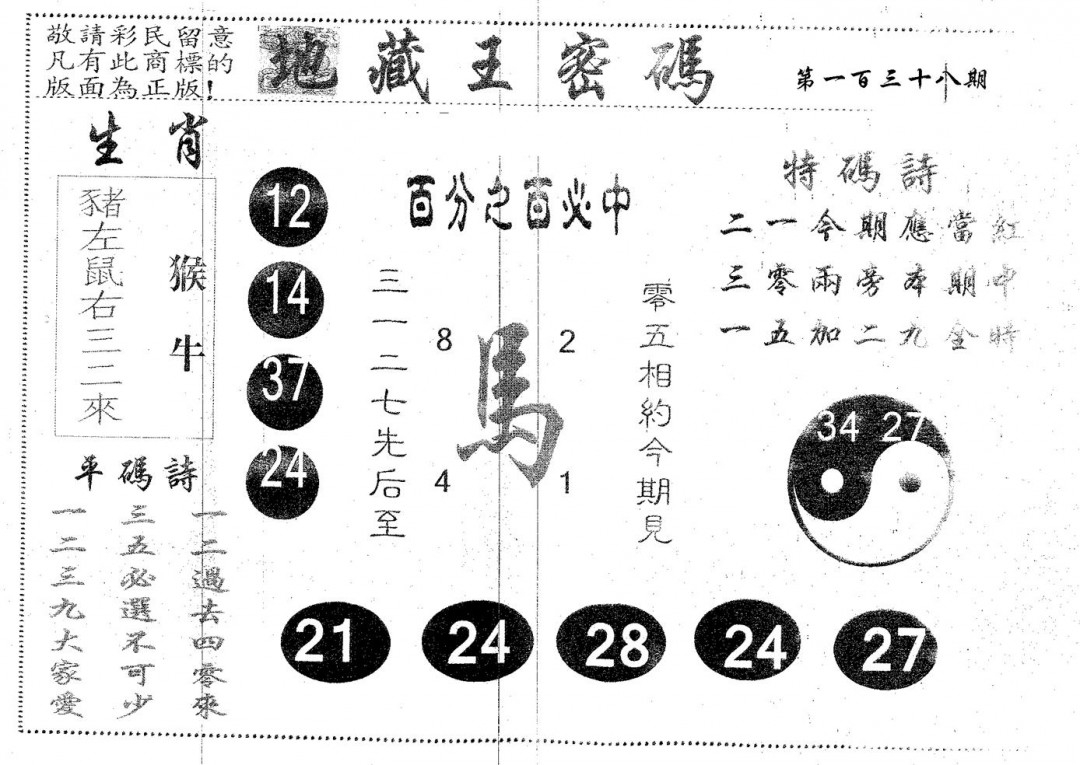 敬請彩民留意
凡有此商標的
版面為正版!
地藏王密碼
第一百三十八期
生肖
豬左鼠右三二來
猴牛
12
14
37
24
百分之百必中
三一二七先后至
8
2
馬
4
1
零五相約今期見
特碼詩
二一今期應當紅
三零兩旁本期中
一五加二九全時
34 27
平碼詩
一二三九大家愛
三五必選不可少
一二過去四零來
21 24 28 24 27